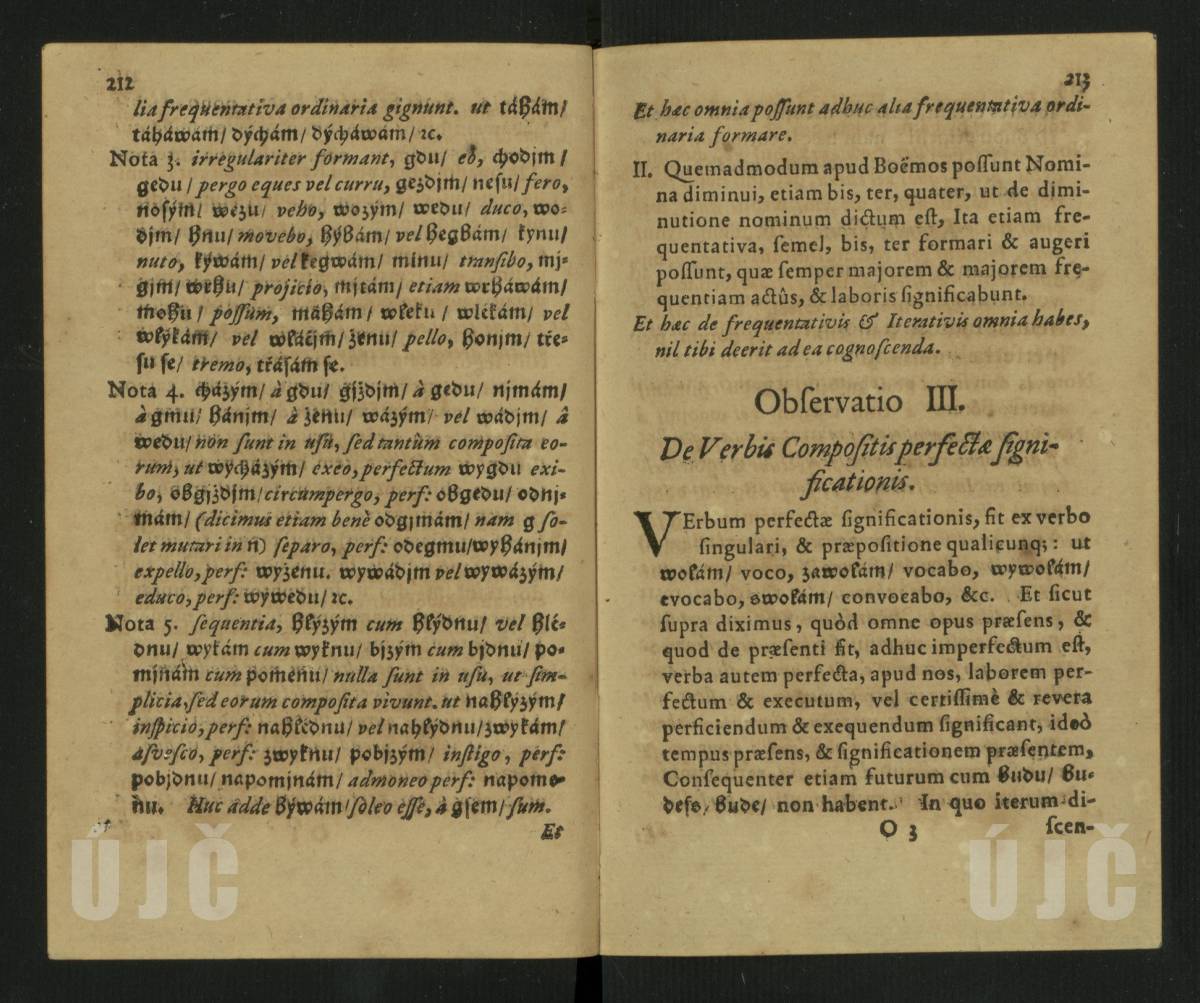 212
lia frequentativa ordinaria gignunt. ut táhám/
táháwám/ dýchám/ dýcháwám/ ꝛc.
Nota 3. irregulariter formant, gdu/ eo, chodjm/
gedu/ pergo eques vel curru, gezdjm/ nesu/ fero,
nosým/ wezu/ veho, wozým/ wedu/ duco, wo⸗
djm/ hnu/ movebo, hýbám/ vel hegbám/ kynu/
nuto, kýwám/ vel kegwám/ minu/ transibo, mj⸗
gjm/ wrhu/ projicio, mjtám/ etiam wrháwám/
mohu/ possum, máhám/ wleku/ wlékám/ vel
wlýkám/ vel wláčjm/ ženu/ pello, honjm/ tře⸗
su se/ tremo, třásám se.
Nota 4. cházým/ à gdu/ gjždjm/ à gedu/ njmám/
à gmu/ hánjm/ à ženu/ wázým/ vel wádjm/ â
wedu/ non sunt in usu, sed tantùm composita eo-
rum, ut wycházým/ exeo, perfectum wygdu exi-
bo, obgjždjm/ circumpergo, perf: obgedu/ odnj⸗
mám/ (dicimus etiam benè odgjmám/ nam g so-
let mutari in ň) separo, perf: odegmu/ wyhánjm/
expello, perf: wyženu. wywádjm vel wywázým/
educo, perf: wywedu/ ꝛc.
Nota 5. sequentia, hlýzým cum hlýdnu/ vel hlé⸗
dnu/ wykám cum wyknu/ bjzým cum bjdnu/ po⸗
mjnám cum pomenu/ nulla sunt in usu, ut sim-
plicia, sed eorum composita vivunt. ut nahlýzým/
inspicio, perf: nahlédnu/ vel nahlýdnu/ zwykám/
asvesco, perf: zwyknu/ pobjzým/ instigo, perf:
pobjdnu/ napomjnám/ admoneo perf: napome⸗
nu. Huc adde býwám/ soleo esse, à gsem/ sum.
Et
213
Et hæc omnia possunt adhuc alia frequentativa ordi-
naria formare.
II. Quemadmodum apud Boëmos possunt Nomi-
na diminui, etiam bis, ter, quater, ut de dimi-
nutione nominum dictum est, Ita etiam fre-
quentativa, semel, bis, ter formari & augeri
possunt, quæ semper majorem & majorem fre-
quentiam actûs, & laboris significabunt.
Et hæc de frequentativis & Iterativis omnia habes,
nil tibi deerit ad ea cognoscenda.
Observatio III.
De Verbis Compositis perfectæ signi-
ficationis.
VErbum perfectæ significationis, fit ex verbo
singulari, & præpositione qualicunq;: ut
wolám/ voco, zawolám/ vocabo, wywolám/
evocabo, swolám/ convocabo, &c. Et sicut
supra diximus, quòd omne opus præsens, &
quod de præsenti fit, adhuc imperfectum est,
verba autem perfecta, apud nos, laborem per-
fectum & executum, vel certissimè & revera
perficiendum & exequendum significant, ideò
tempus præsens, & significationem præsentem,
Consequenter etiam futurum cum budu/ bu⸗
deš, bude/ non habent. In quo iterum di-
O 3 scen-
ÚJČ
ÚJČ